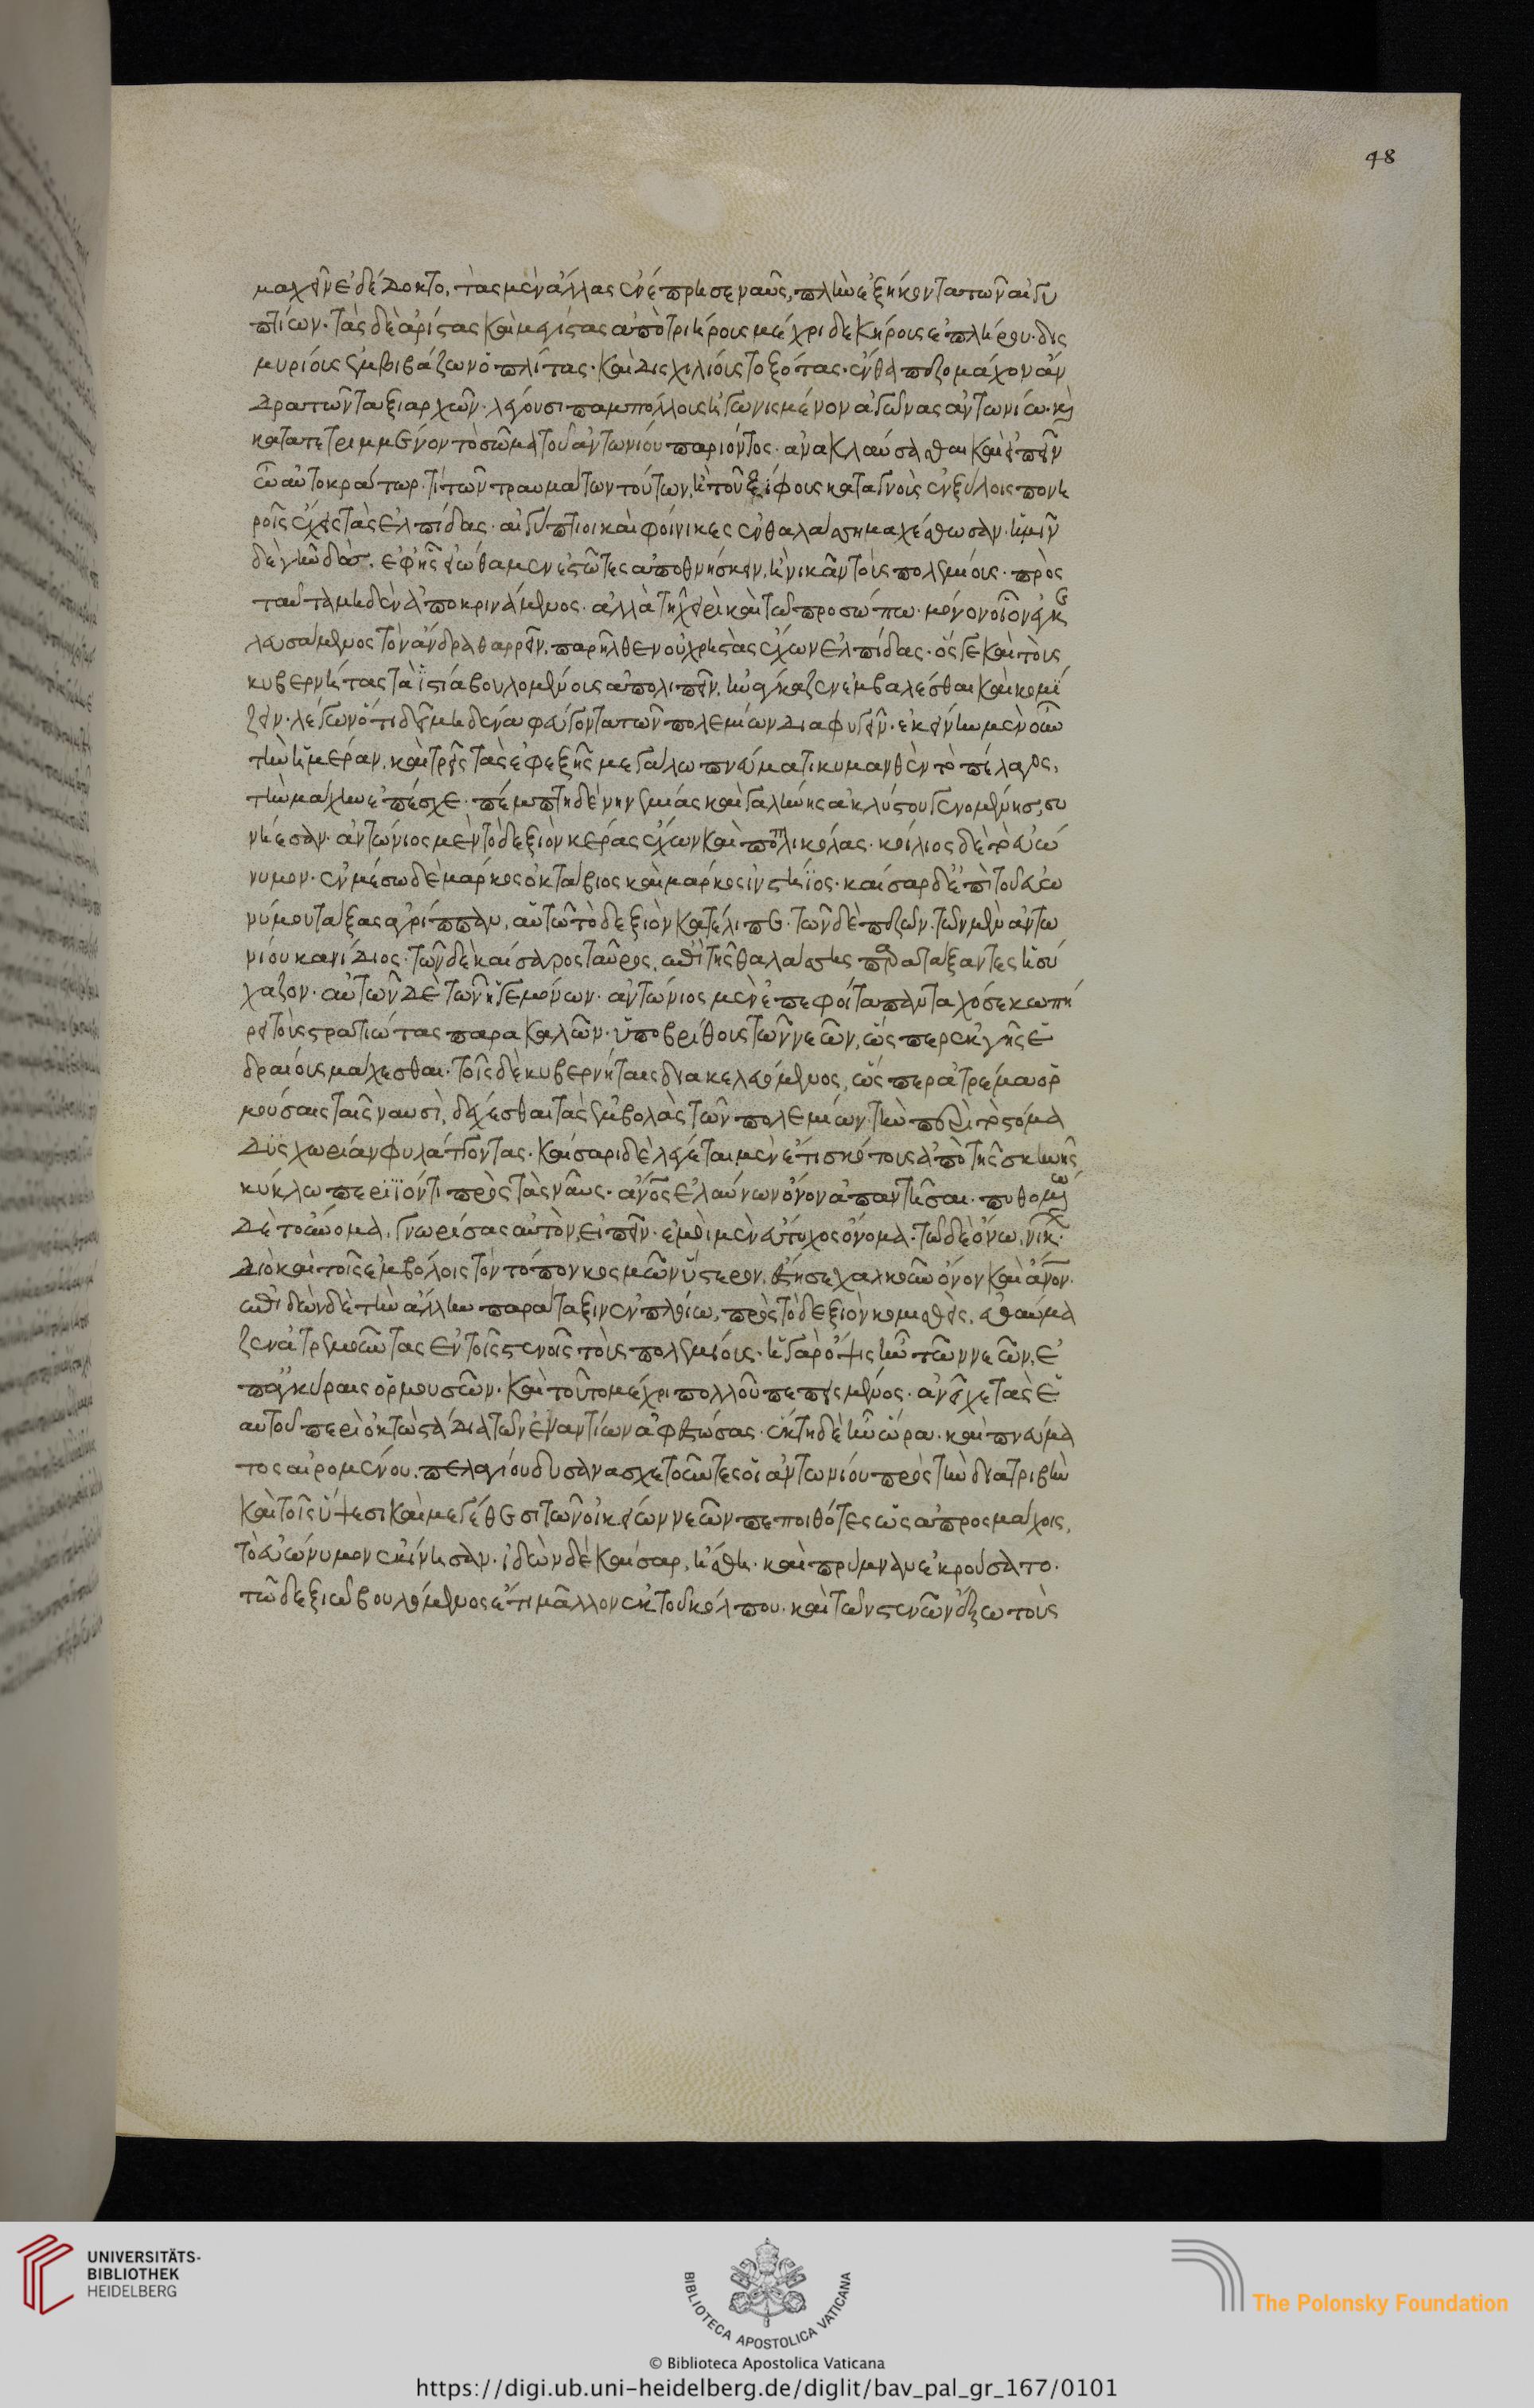 48
μαχεῖν ἐδέδοκτο, τὰς μὲν ἄλλας ἐνέπρησε ναῦς, πλὴν ἑξήκοντα τῶν αἰγυ
πτίων· τὰς δὲ ἀρίστας καὶ μεγίστας ἀπὸ τριήρους μέχρι δεκήρους ἐπλήρου· δις
μυρίους ἐμβιβάζων ὁπλίτας· καὶ δισχιλίους τοξότας· ἔνθα πεζομάχον ἄν
δρα τῶν ταξιαρχῶν· λέγουσι παμπόλλους ἠγωνισμένον ἀγῶνας ἀντωνίω· καὶ
κατατετριμμένον τὸ σῶμα τοῦ ἀντωνίου παριόντος· ἀνακλαύσασθαι καὶ εἰπεῖν
ὦ αὐτοκράτωρ· τί τῶν τραυμάτων τούτων, ἢ τοῦ ξίφους καταγνοὺς ἐν ξύλοις πονη
ροῖς ἔχεις τὰς ἐλπίδας· αἰγύπτιοι καὶ φοίνικες ἐν θαλάσση μαχέσθωσαν· ἡμῖν
δὲ γῆν δὸς, ἐφ' ἧς εἰώθαμεν ἑστῶτες ἀποθνήσκειν, ἢ νικᾶν τοὺς πολεμίους· πρὸς
ταῦτα μηδὲν ἀποκρινάμενος· ἀλλὰ τῆ χειρὶ καὶ τῶ προσώπω· μόνον οἷον ἐγκε
λευσάμενος τὸν ἄνδρα θαρρεῖν, παρῆλθεν οὐ χρηστὰς ἔχων ἐλπίδας· ὅς γε καὶ τοὺς
κυβερνήτας τὰ ἱστία βουλομένους ἀπολιπεῖν, ἠνάγκαζεν ἐμβαλέσθαι καὶ κομί
ζειν· λέγων ὅτι δεῖ μηδένα φεύγοντα τῶν πολεμίων διαφυγεῖν· ἐκείνην μὲν οὖν
τὴν ἡμέραν, καὶ τρεῖς τὰς ἐφεξῆς μεγάλω πνεύματι κυμανθὲν τὸ πέλαγος,
τὴν μάχην ἐπέσχε· πέμπτη δὲ νηνεμίας καὶ γαλήνης ἀκλύστου γενομένης, συ
νήεσαν· ἀντώνιος μὲν τὸ δεξιὸν κέρας ἔχων καὶ ποπλικόλας· κοίλιος δὲ τὸ εὐώ
νυμον· ἐν μέσω δὲ μάρκος ὀκτάβιος καὶ μάρκος ἰνστήϊος· καίσαρ δ' ἐπὶ τοῦ εὐω
νύμου τάξας ἀγρίππαν, αὑτῶ τὸ δεξιὸν κατέλιπε· τῶν δὲ πεζῶν· τῶν μὲν ἀντω
νίου κανίδιος· τῶν δὲ καίσαρος ταῦρος, ἐπὶ τῆς θαλάσσης παρατάξαντες ἡσύ
χαζον· αὐτῶν δὲ τῶν ἡγεμόνων· ἀντώνιος μὲν ἐπεφοίτα πανταχόσε κωπή
ρει τοὺς στρατιώτας παρακαλῶν· ὑπὸ βρίθους τῶν νεῶν, ὥσπερ ἐκ γῆς ἑ
δραίους μάχεσθαι· τοῖς δὲ κυβερνήταις διακελευόμενος, ὥσπερ ἀτρέμα ὁρ
μούσαις ταῖς ναυσὶ, δέχεσθαι τὰς ἐμβολὰς τῶν πολεμίων· τὴν περὶ τὸ στόμα
δυσχωρίαν φυλάττοντας· καίσαρι δὲ λέγεται μὲν ἔτι σκότους ἀπὸ τῆς σκηνῆς
κύκλω περιϊόντι πρὸς τὰς ναῦς· ἄνος ἐλαύνων ὄνον ἀπαντῆσαι· πυθομένω
δὲ τοὔνομα, γνωρίσας αὐτὸν, εἰπεῖν· ἐμοὶ μὲν εὔτυχος ὄνομα· τῶ δὲ ὄνω, νίκων·
διὸ καὶ τοῖς ἐμβόλοις τὸν τόπον κοσμῶν ὕστερον, ἔστησε χαλκοῦν ὄνον καὶ ἄνον·
ἐπιδὼν δὲ τὴν ἄλλην παράταξιν ἐν πλοίω, πρὸς τὸ δεξιὸν κομισθεὶς, ἐθαύμα
ζεν ἀτρεμοῦντας ἐν τοῖς στενοῖς τοὺς πολεμίους· ἡ γὰρ ὄψις ἦν τῶν νεῶν, ἐ
π' ἀγκύραις ὁρμουσῶν· καὶ τοῦτο μέχρι πολλοῦ πεπεισμένος· ἀνεῖχε τὰς ἑ
αυτοῦ περὶ ὀκτὼ στάδια τῶν ἐναντίων ἀφεστώσας· ἕκτη δὲ ἦν ὥρα· καὶ πνεύμα
τος αἰρομένου, πελαγίου δυσανασχετοῦντες οἱ ἀντωνίου πρὸς τὴν διατριβὴν
καὶ τοῖς ὕψεσι καὶ μεγέθεσι τῶν οἰκείων νεῶν πεποιθότες ὡς ἀπροσμάχοις,
τὸ εὐώνυμον ἐκίνησαν· ἰδὼν δὲ καῖσαρ, ἥσθη· καὶ πρύμναν ἐκρούσατο·
τῶ δεξιῶ βουλόμενος ἔτι μᾶλλον ἐκ τοῦ κόλπου· καὶ τῶν στενῶν ἔξω τοὺς
UNIVERSITÄTS-
BIBLIOTHEK
HEIDELBERG
BIBLIOTECA APOSTOLICA VATICANA
The Polonsky Foundation
© Biblioteca Apostolica Vaticana
https://digi.ub.uni-heidelberg.de/diglit/bav_pal_gr_167/0101